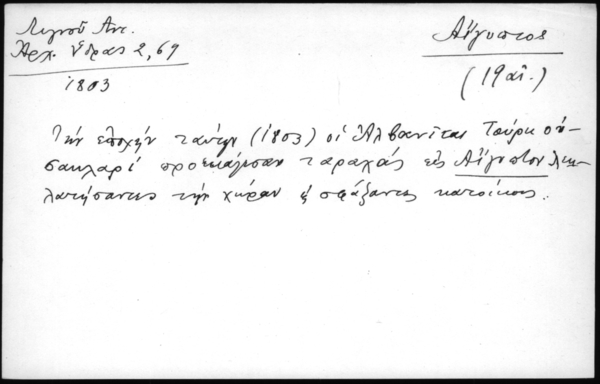 Λιγνοῦ Αντ.
Ἀρχ. Ὕδρας 2, 69
1803
Αἴγυπτος
(19 αἰ.)
Τὴν ἐποχὴν ταύτην (1803) οἱ Ἀλβανῖται Τοῦρκοι
προεκάλεσαν ταραχάς εἰς Αἴγυπτον λεη-
λατήσαντες τὴν χώραν & σφάξαντες κατοίκους.